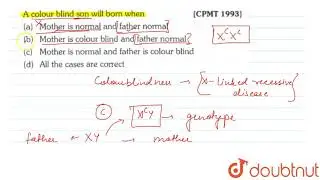 A colour blind son will born when [CPMT 1993]
(a) Mother is normal and father normal
(b) Mother is colour blind and father normal
(c) Mother is normal and father is colour blind
(d) All the cases are correct
Colourblindness → X-linked recessive
disease
(C) XᶜY → genotype
father → XY → mother
doubtnut